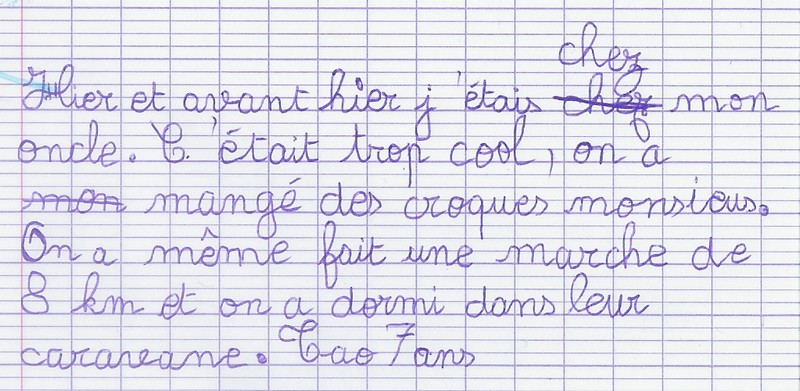 chez
Hier et avant hier j'étais chez mon
oncle. C'était trop cool, on a
mon mangé des croques monsieus.
On a même fait une marche de
8 km et on a dormi dans leur
caraveane. Tao 7 ans